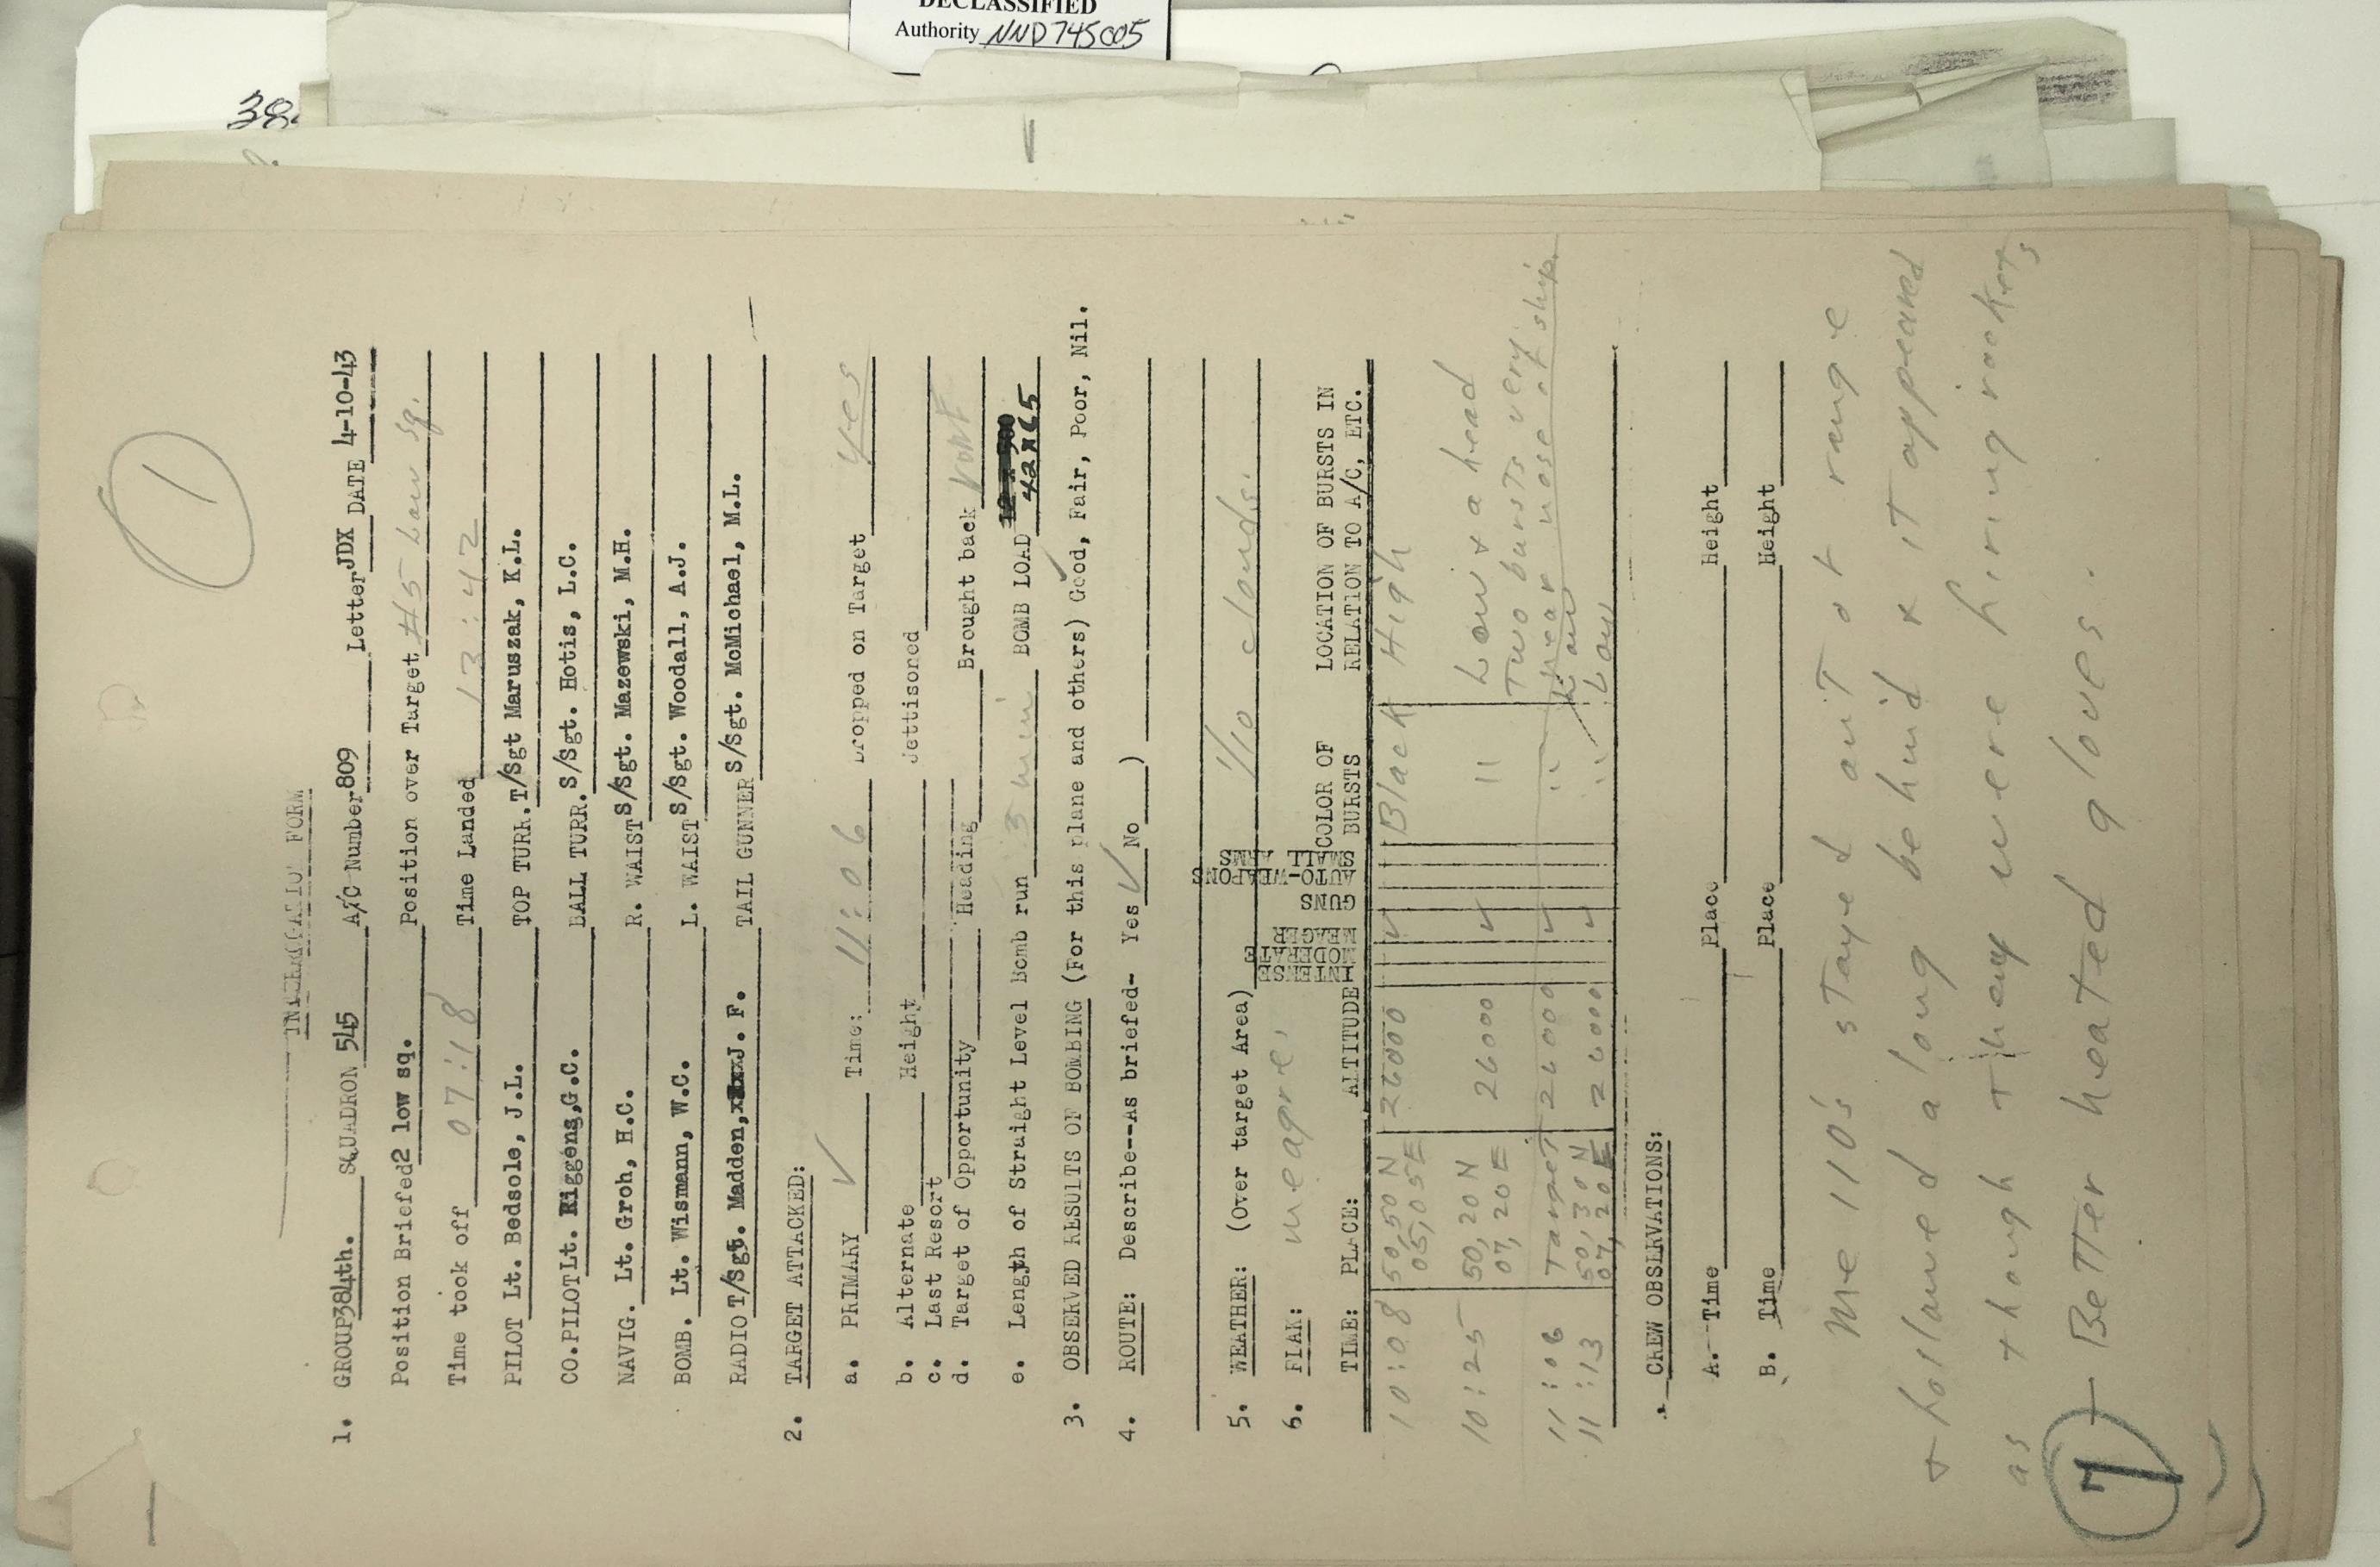 DECLASSIFIED
Authority NND 745005
384
1
INTERROGATION FORM
1. GROUP 384th. SQUADRON 545 A/C Number 809 Letter JDX DATE 4-10-43
Position Briefed 2 low sq. Position over Target #5 Low sq.
Time took off 07:18 Time Landed 13:42
PILOT Lt. Bedsole, J.L. TOP TURR. T/Sgt Maruszak, K.L.
CO.PILOT Lt. Riggens, G.C. BALL TURR. S/Sgt. Hotis, L.C.
NAVIG. Lt. Groh, H.C. R. WAIST S/Sgt. Mazewski, M.H.
BOMB. Lt. Wismann, W.C. L. WAIST S/Sgt. Woodall, A.J.
RADIO T/Sgt. Madden, J. F. TAIL GUNNER S/Sgt. McMichael, M.L.
2. TARGET ATTACKED:
a. PRIMARY ✓ Time: 11:06 Dropped on Target yes
b. Alternate Height Jettisoned
c. Last Resort
d. Target of Opportunity Heading Brought back
e. Length of Straight Level Bomb run 3 min BOMB LOAD 42 x 65
3. OBSERVED RESULTS OF BOMBING (For this plane and others) Good, Fair, Poor, Nil.
4. ROUTE: Describe--As briefed- Yes ✓ No )
5. WEATHER: (Over target Area) 1/10 clouds.
6. FLAK: meagre.
TIME: PLACE: ALTITUDE INTENSE MODERATE MEAGER GUNS AUTO-WEAPONS SMALL ARMS COLOR OF BURSTS LOCATION OF BURSTS IN RELATION TO A/C, ETC.
10:08 50,50 N 05,05 E 26000 4 Black High
10:25 50,20 N 07,20 E 26000 4 " Low & a head
11:06 Target 26000 4 " Two bursts very near nose of ship
11:13 50,30 N 07,20 E 26000 4 " Low
CREW OBSERVATIONS:
A. Time Place Height
B. Time Place Height
Me 110's stayed out of range
& followed a long behind & it appeared
as though they were firing rockets
7 - Better heated gloves.